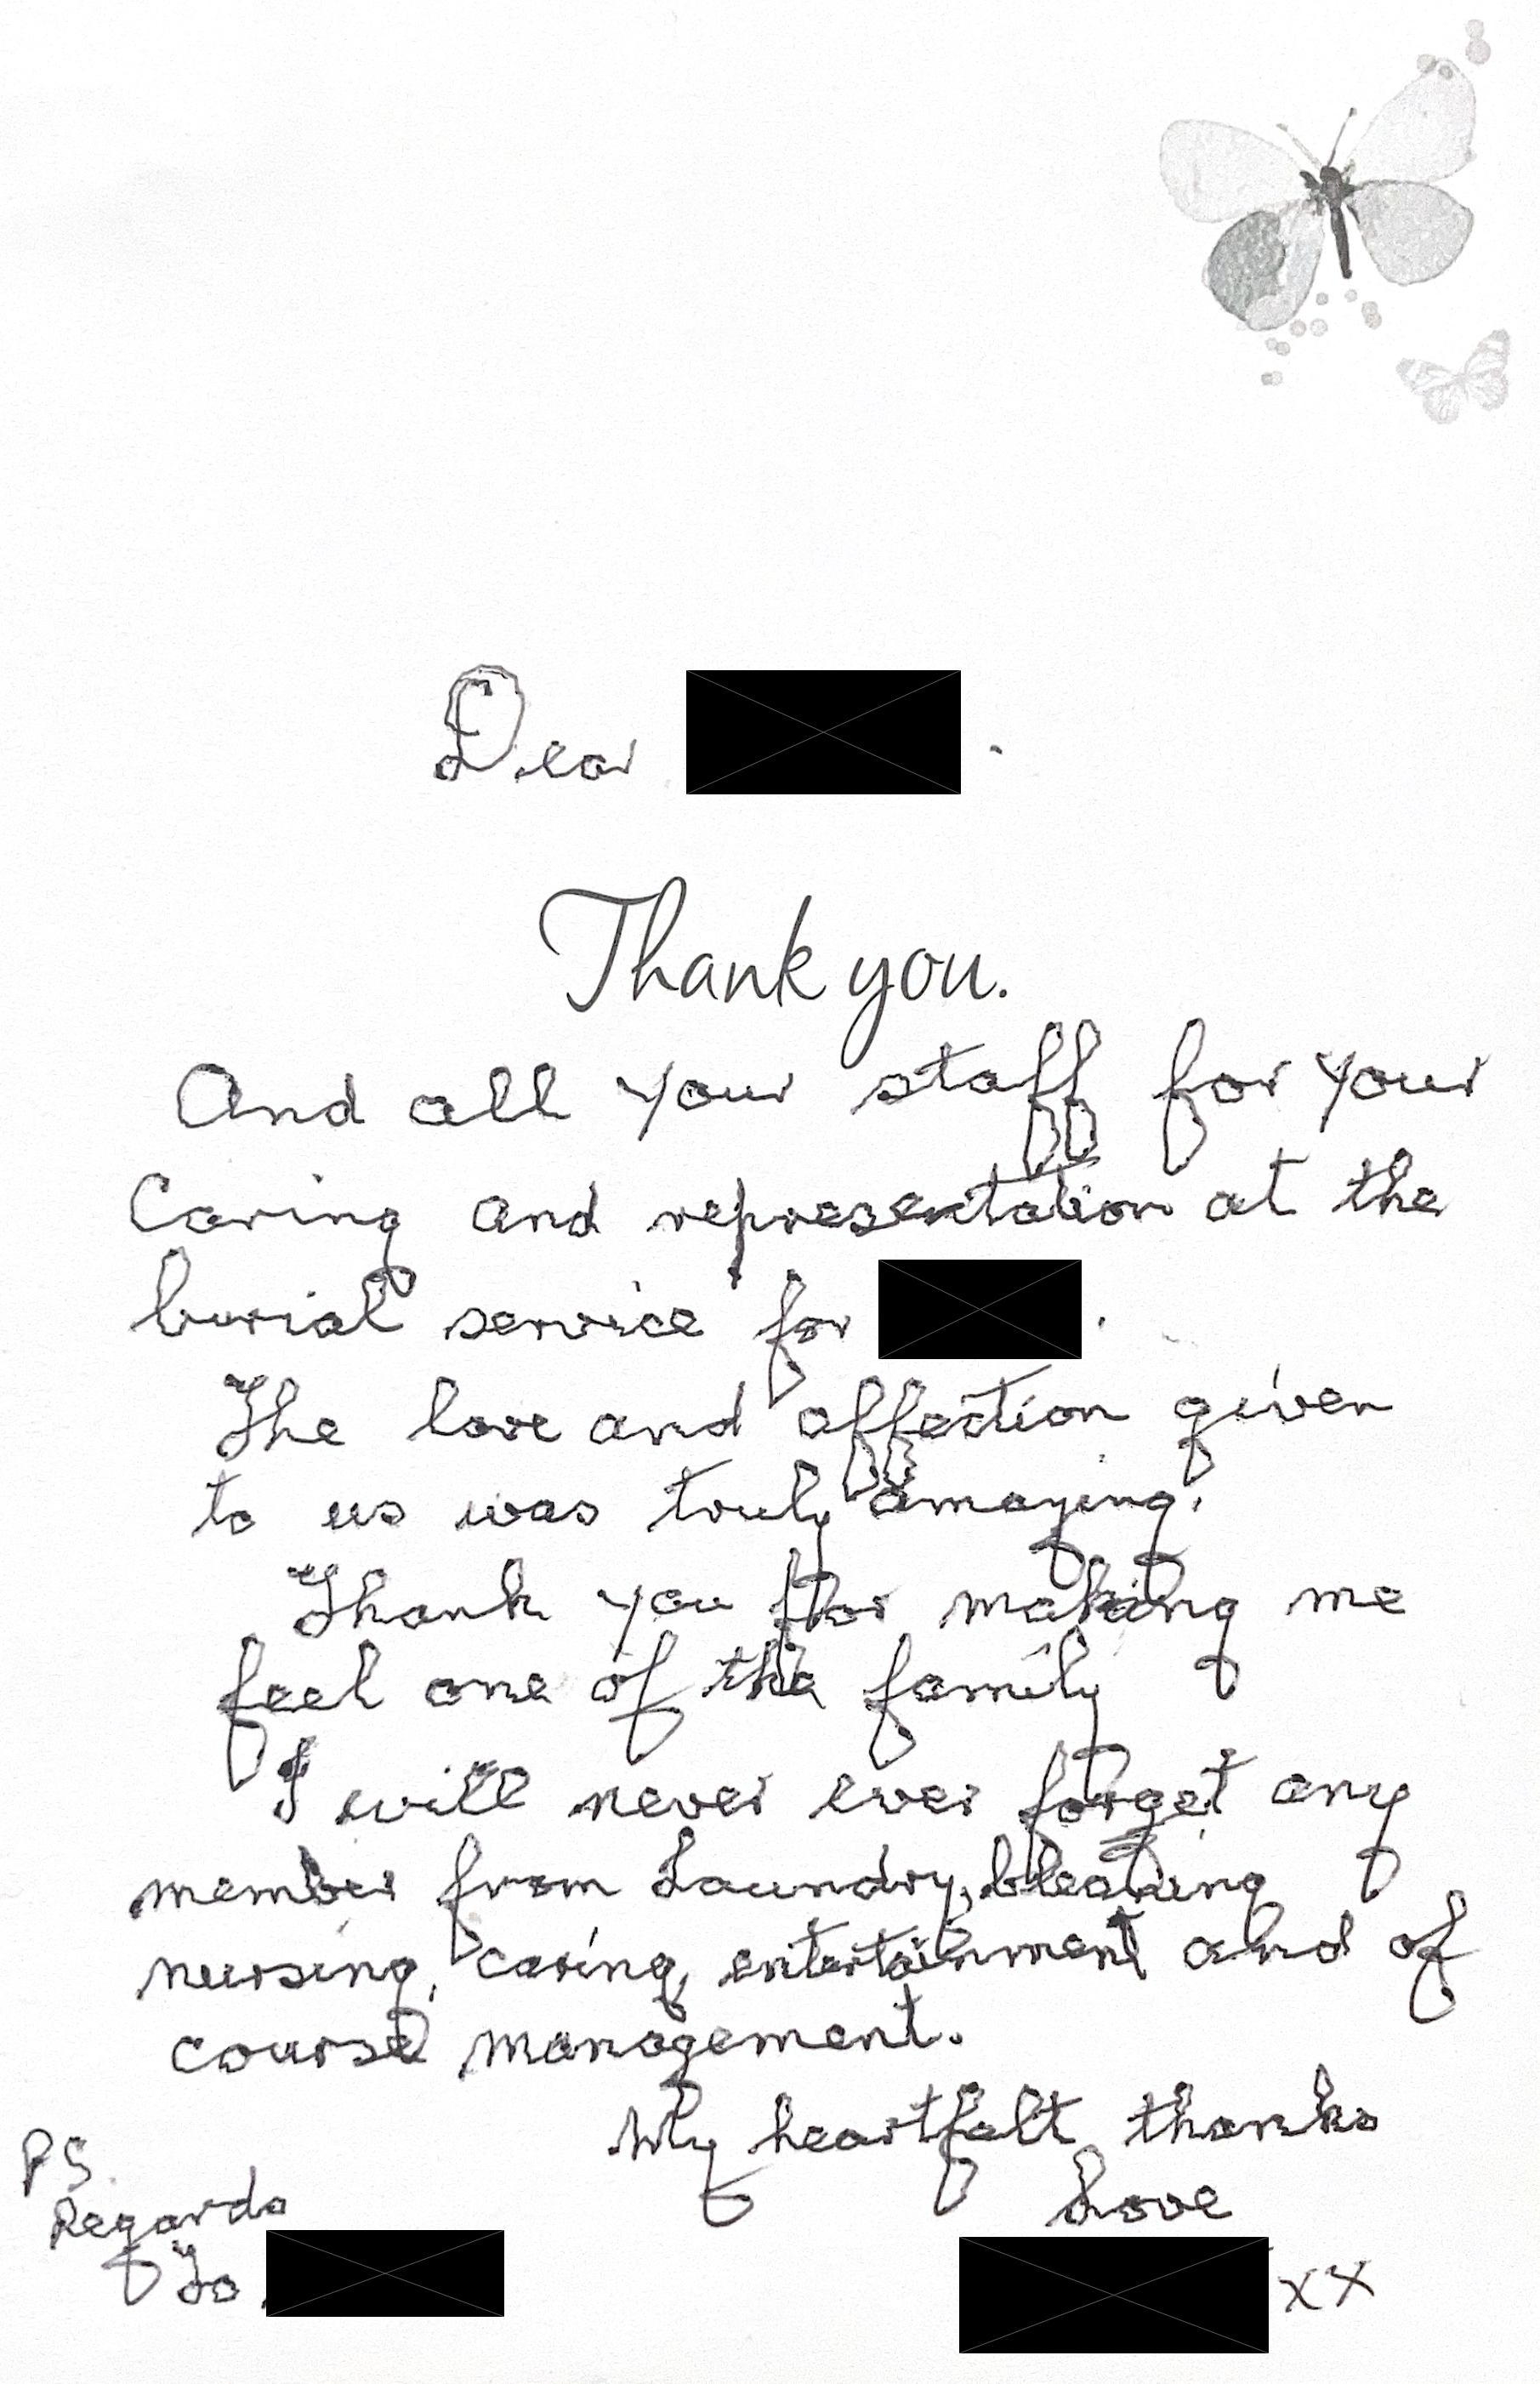 Dear .
Thank you.
And all your staff for your
Caring and representation at the
burial service for .
The love and affection given
to us was truly amazing.
Thank you for making me
feel one of the family
I will never ever forget any
member from Laundry, cleaning
nursing, caring, entertainment and of
course management.
My heartfelt thanks
Love
xx
PS.
Regards
To